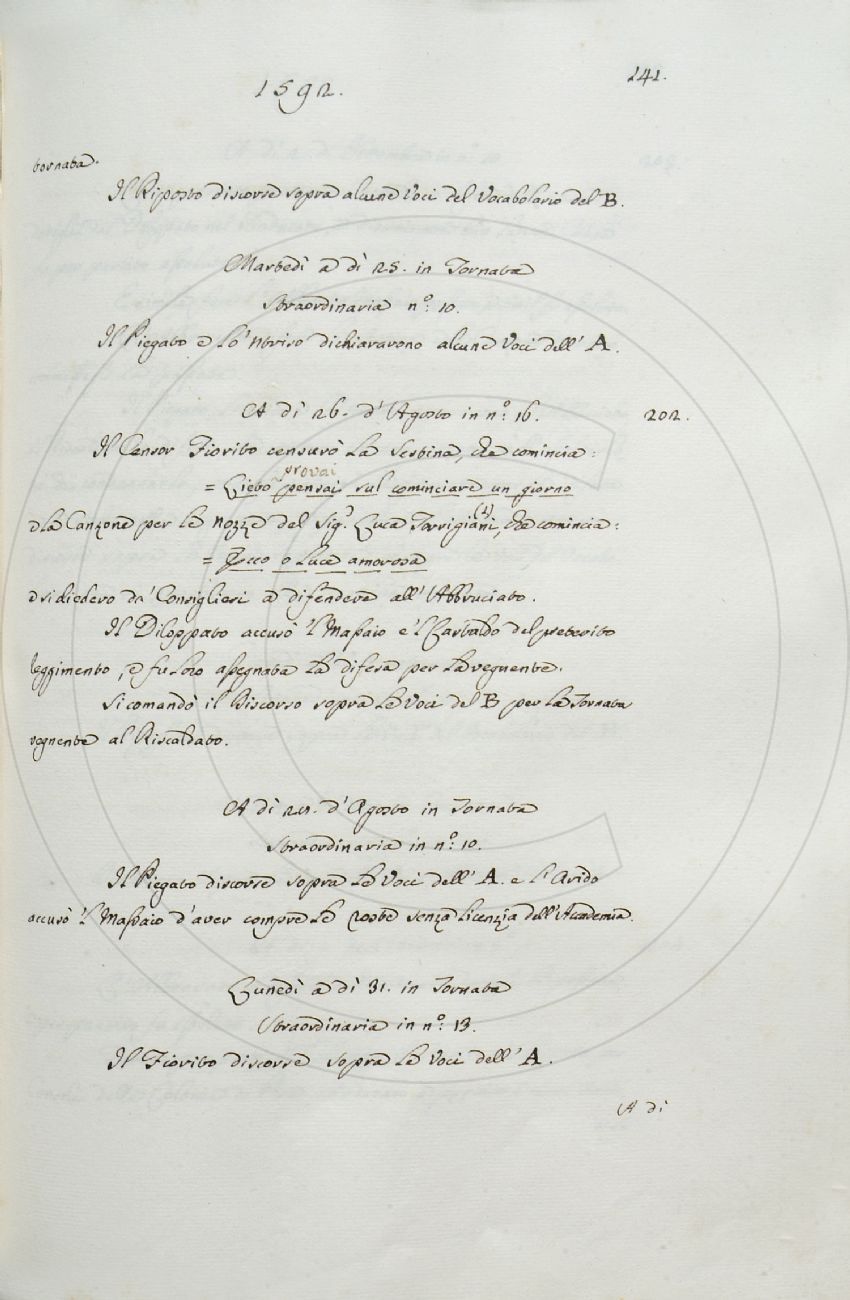 141.
1592.
tornata.
Il Riposto discorse sopra alcune Voci del Vocabolario del B.
Martedì a dì 25. in Tornata
Straordinaria n.º 10.
Il Piegato e lo 'Ntriso dichiararono alcune Voci dell'A.
A dì 26. d'Agosto in n.º 16.
202.
Il Censor Fiorito censurò la Sestina, che comincia:
provai
= Lieto pensai sul cominciare un giorno
e la Canzone per le Nozze del Sig.r Luca Torrigiani, (1) che comincia:
= Ecco o Luca amorosa
e si diedero da' Consiglieri a difendere all'Abbruciato.
Il Diloppato accusò 'l Massaio e 'l Castaldo del preterito
reggimento, e fu loro assegnata la difesa per la vegnente.
Si comandò il Discorso sopra le Voci del B per la Tornata
vegnente al Riscaldato.
A dì 29. d'Agosto in Tornata
Straordinaria in n.º 10.
Il Piegato discorse sopra le Voci dell'A. e l'Arido
accusò 'l Massaio d'aver compre le roste senza licenzia dell'Academia.
Lunedì a dì 31. in Tornata
Straordinaria in n.º 13.
Il Fiorito discorse sopra le Voci dell'A.
A dì